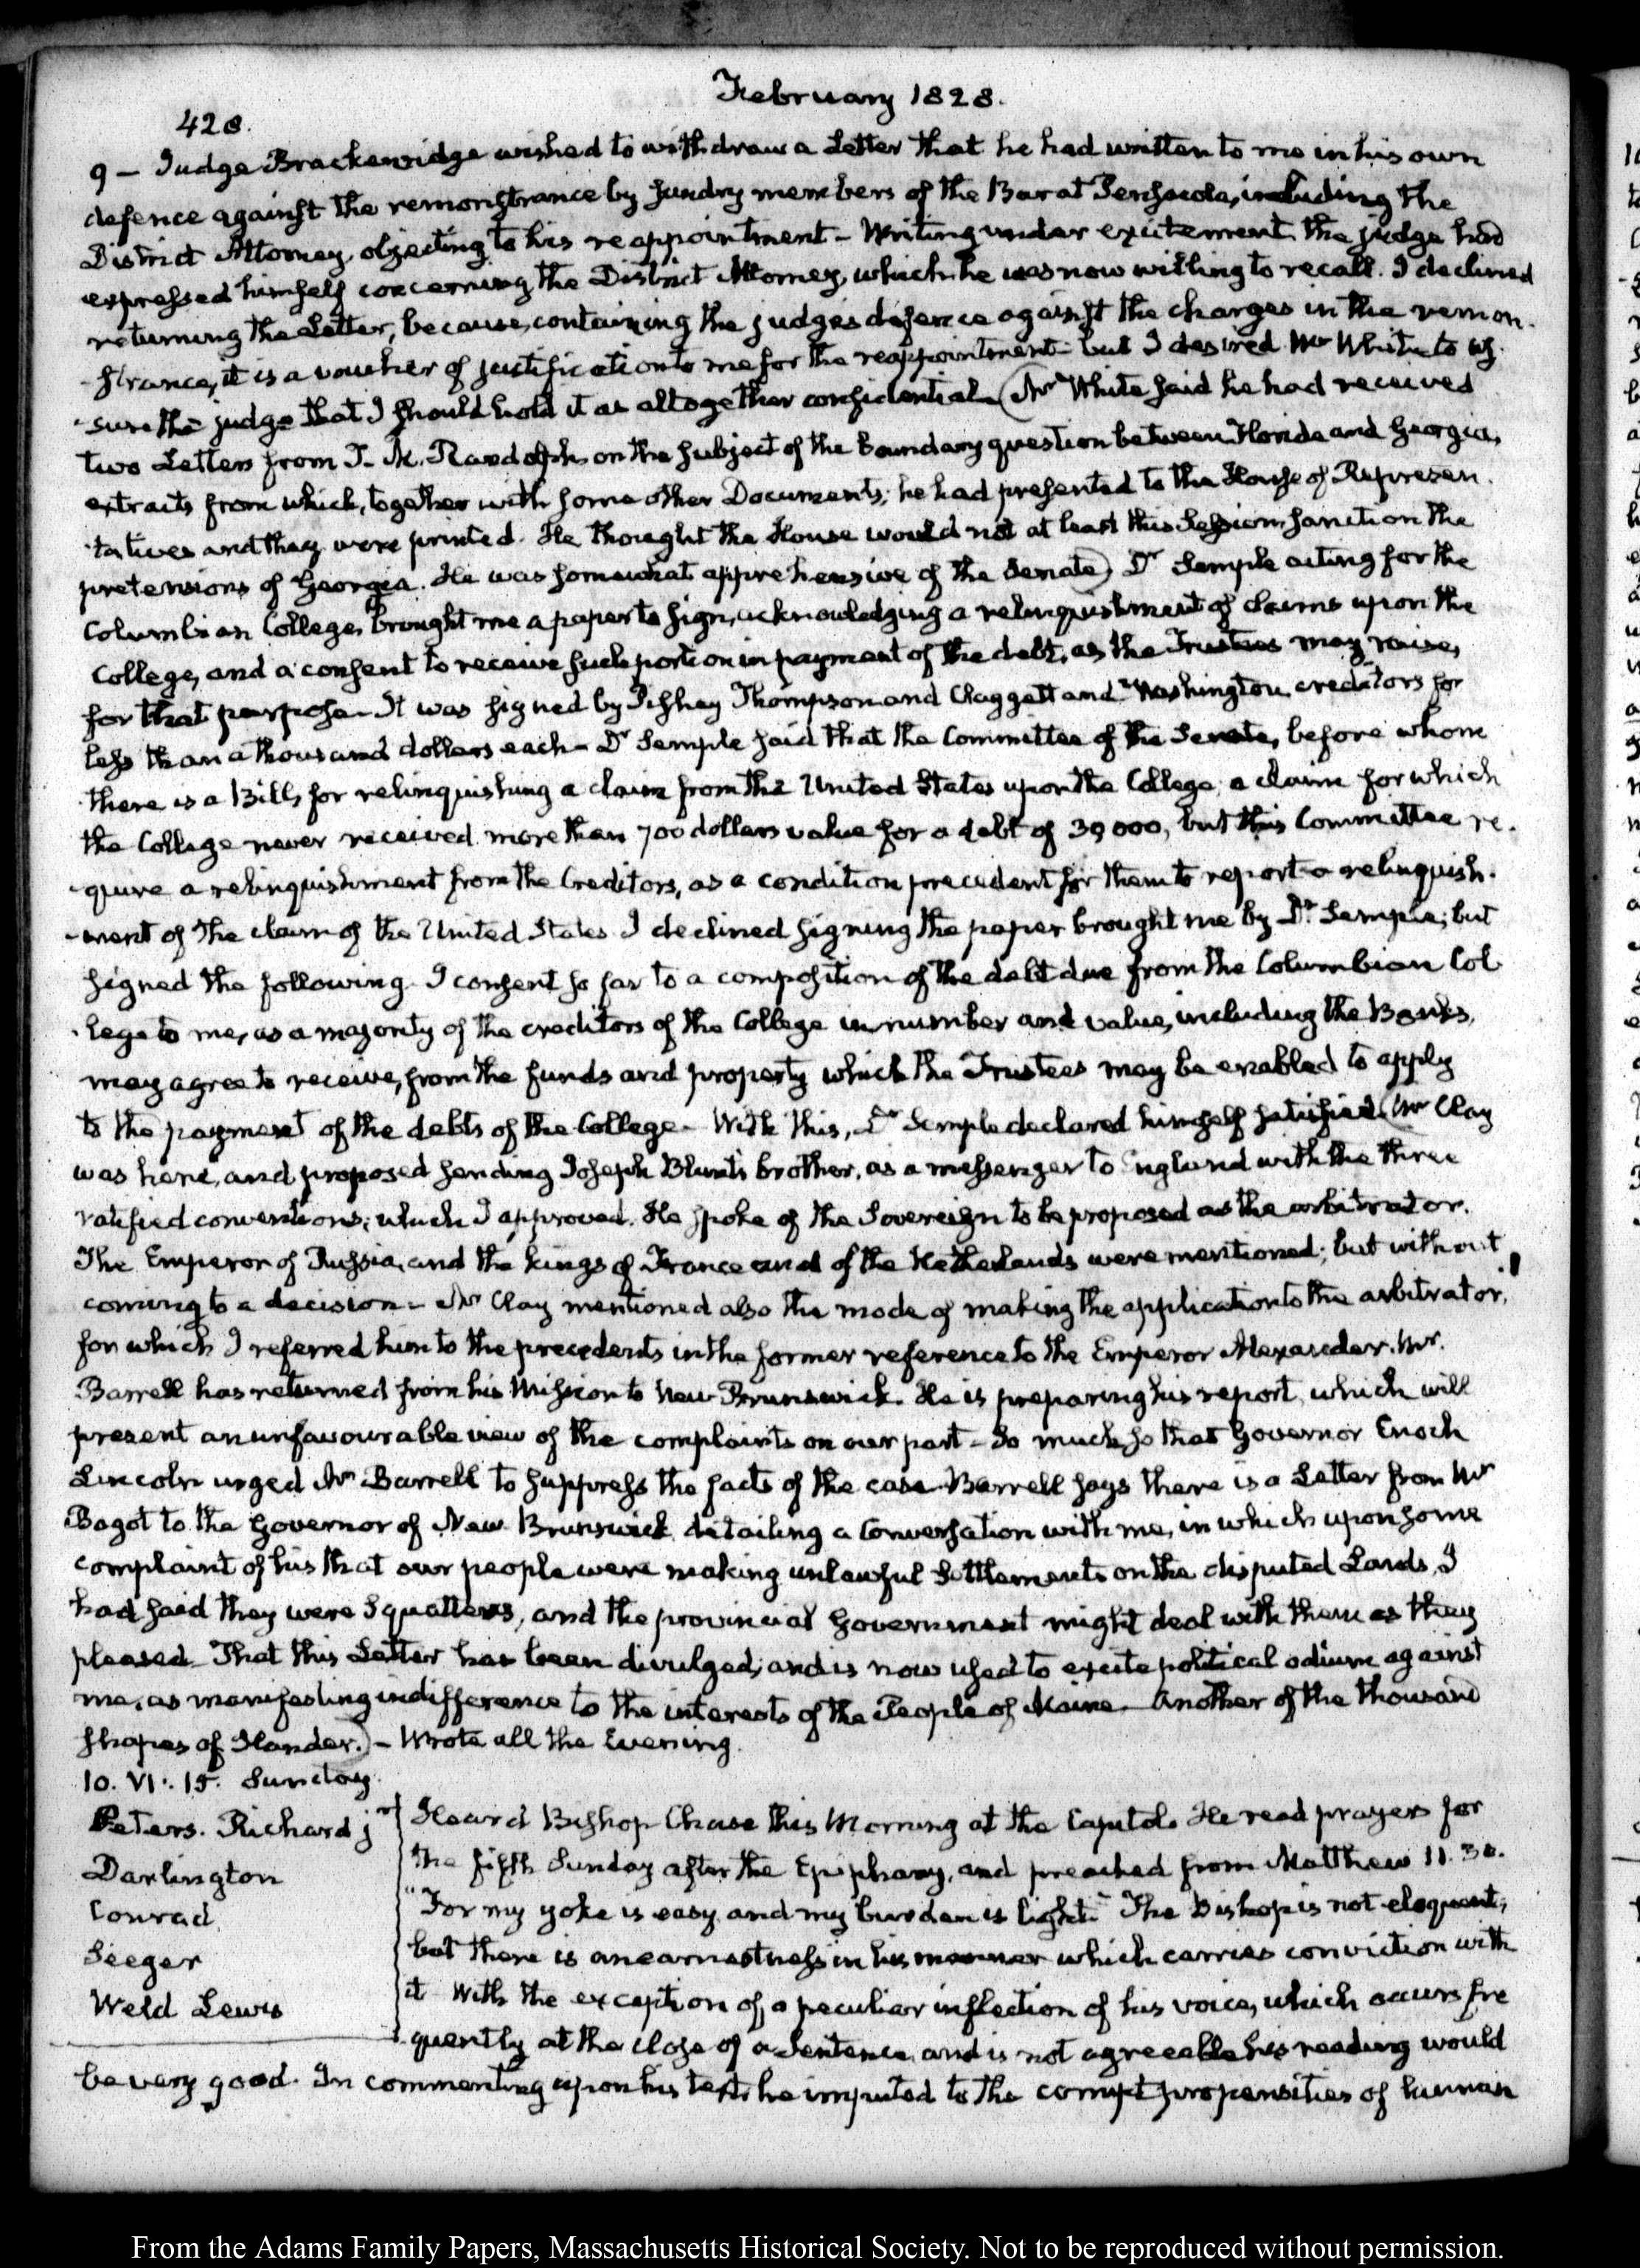 February 1828.
428.
9 — Judge Brackenridge wished to withdraw a Letter that he had written to me in his own
defence against the remonstrance by sundry members of the Bar at Pensacola, including the
District Attorney, objecting to his reappointment — Writing under excitement the judge had
expressed himself concerning the District Attorney, which he was now willing to recall. I declined
returning the Letter, because, containing the judge's defence against the charges in the remon-
-strance, it is a voucher of justification to me for the reappointment — but I desired Mr White to as-
-sure the judge that I should hold it as altogether confidential. (Mr White said he had received
two Letters from T. M. Randolph on the subject of the boundary question between Florida and Georgia,
extracts from which, together with some other Documents, he had presented to the House of Represen-
-tatives and they were printed. He thought the House would not at least this Session sanction the
pretensions of Georgia. He was somewhat apprehensive of the Senate) Dr Semple acting for the
Columbian College, brought me a paper to sign, acknowledging a relinquishment of claims upon the
College, and a consent to receive such portion in payment of the debt, as the Trustees may raise,
for that purpose — It was signed by Tiffney Thompson and Claggett and Washington, creditors for
less than a thousand dollars each — Dr Semple said that the Committee of the Senate, before whom
there is a Bill, for relinquishing a claim from the United States upon the College; a claim for which
the College never received more than 700 dollars value for a debt of 30 000, but this Committee re-
-quire a relinquishment from the Creditors, as a condition precedent for them to report a relinquish-
-ment of the claim of the United States. I declined signing the paper brought me by Dr. Semple; but
signed the following. I consent so far to a composition of the debt due from the Columbian Col-
-lege to me, as a majority of the creditors of the College in number and value, including the Banks,
may agree to receive, from the funds and property which the Trustees may be enabled to apply
to the payment of the debts of the College — With this, Dr Semple declared himself satisfied (Mr Clay
was here, and proposed sending Joseph Blunt's brother, as a messenger to England with the three
ratified conventions; which I approved. He spoke of the Sovereign to be proposed as the arbitrator.
The Emperor of Russia, and the kings of France and of the Netherlands were mentioned; but without
coming to a decision — Mr Clay mentioned also the mode of making the application to the arbitrator,
for which I referred him to the precedents in the former reference to the Emperor Alexander. Mr.
Barrell has returned from his Mission to New-Brunswick. He is preparing his report, which will
present an unfavourable view of the complaints on our part — So much so that Governor Enoch
Lincoln urged Mr Barrell to suppress the facts of the case. Barrell says there is a Letter from Mr
Bagot to the Governor of New Brunswick, detailing a Conversation with me, in which upon some
complaint of his that our people were making unlawful Settlements on the disputed Lands, I
had said they were Squatters, and the provincial Government might deal with them as they
pleased — That this Letter has been divulged, and is now used to excite political odium against
me, as manifesting indifference to the interests of the People of Maine — Another of the thousand
shapes of Slander.) — Wrote all the Evening.
10. VI:15. Sunday.
Peters. Richard jr
Darlington
Conrad
Seeger
Weld Lewis
Heard Bishop Chase this Morning at the Capitol. He read prayers for
the fifth Sunday after the Epiphany, and preached from Matthew 11.30.
"For my yoke is easy, and my burden is light." The Bishop is not eloquent;
but there is an earnestness in his manner which carries conviction with
it. With the exception of a peculiar inflection of his voice, which occurs fre
-quently at the close of a Sentence, and is not agreeable his reading would
be very good. In commenting upon his text, he imputed to the corrupt propensities of human
From the Adams Family Papers, Massachusetts Historical Society. Not to be reproduced without permission.